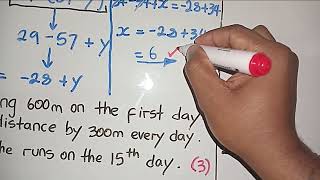 29 - 57 + y
-28 + y
= -28+34
x = -28+34
= 6
ng 600m on the first day
distance by 300m every day.
he runs on the 15th day. (3)